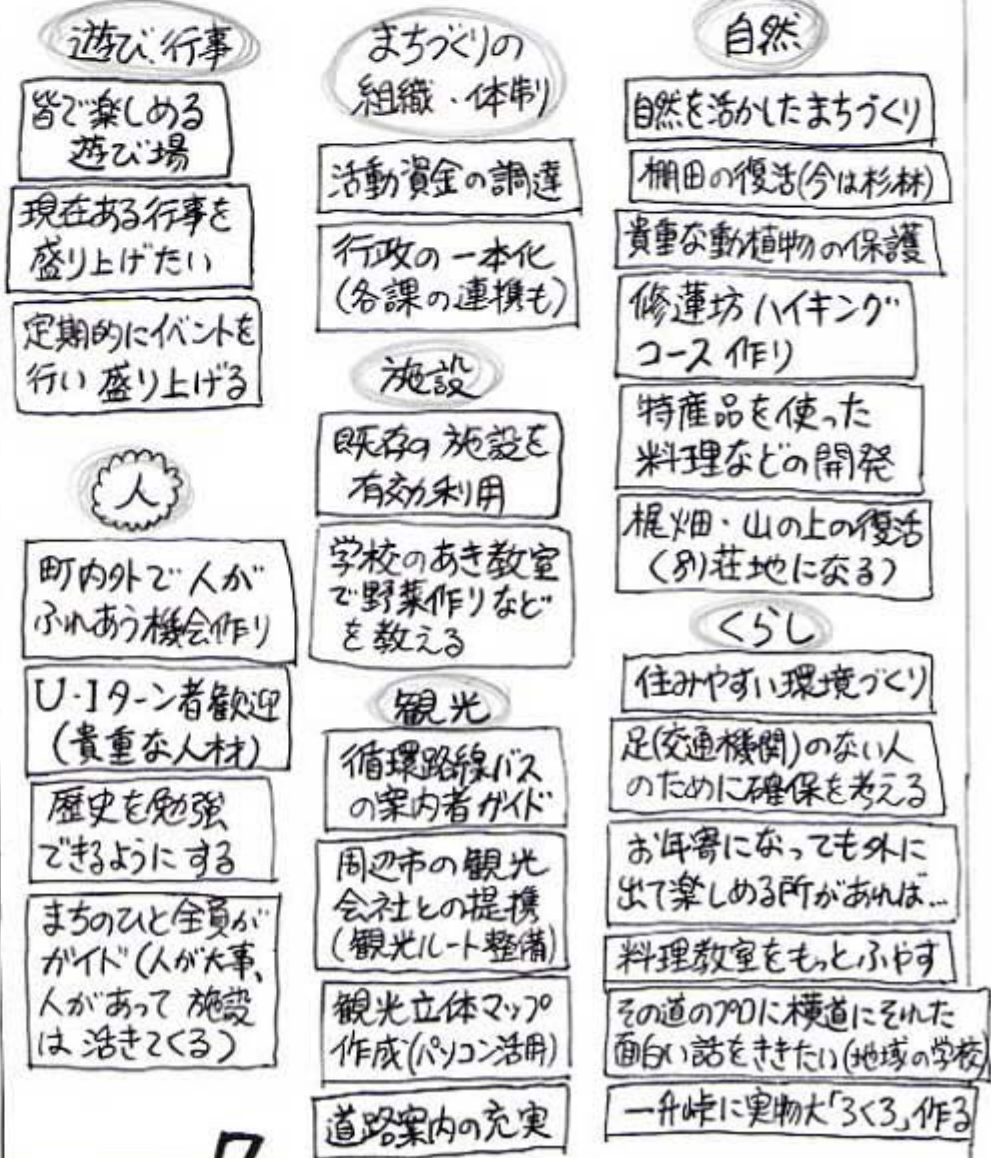 遊び、行事
皆で楽しめる
遊び場
現在ある行事を
盛り上げたい
定期的にイベントを
行い盛り上げる
人
町内外で人が
ふれあう機会作り
U・Iターン者歓迎
(貴重な人材)
歴史を勉強
できるようにする
まちのひと全員が
ガイド(人が大事、
人があって施設
は活きてくる)
まちづくりの
組織・体制
活動資金の調達
行政の一本化
(各課の連携も)
施設
既存の施設を
有効利用
学校のあき教室
で野菜作りなど
を教える
観光
循環路線バス
の案内者ガイド
周辺市の観光
会社との提携
(観光ルート整備)
観光立体マップ
作成(パソコン活用)
道路案内の充実
自然
自然を活かしたまちづくり
棚田の復活(今は杉林)
貴重な動植物の保護
修蓮坊ハイキング
コース作り
特産品を使った
料理などの開発
梶畑・山の上の復活
(別荘地になる)
くらし
住みやすい環境づくり
足(交通機関)のない人
のために確保を考える
お年寄になっても外に
出て楽しめる所があれば...
料理教室をもっとふやす
その道のプロに横道にそれた
面白い話をききたい(地域の学校)
一升峠に実物大「ろくろ」作る